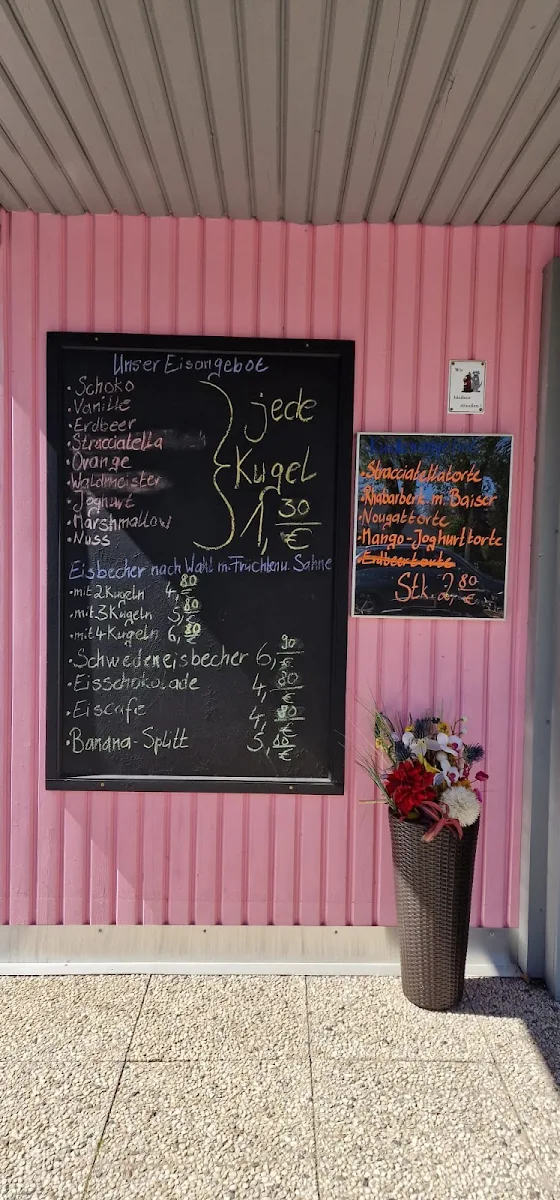 Unser Eisangebot
• Schoko
• Vanille
• Erdbeer
• Stracciatella
• Orange
• Waldmeister
• Joghurt
• Marshmallow
• Nuss
jede
Kugel
1,30 €
Eisbecher nach Wahl m. Früchten u. Sahne
• mit 2 Kugeln 4,80
• mit 3 Kugeln 5,80
• mit 4 Kugeln 6,80
• Schwedeneisbecher 6,90 €
• Eisschokolade 4,80 €
• Eiscafe 4,80 €
• Banana-Splitt 5,
• Stracciatellatorte
• Rhabarberk. m. Baiser
• Nougattorte
• Mango-Joghurttorte
• Erdbeertorte
Stk. 2,80 €
Wir